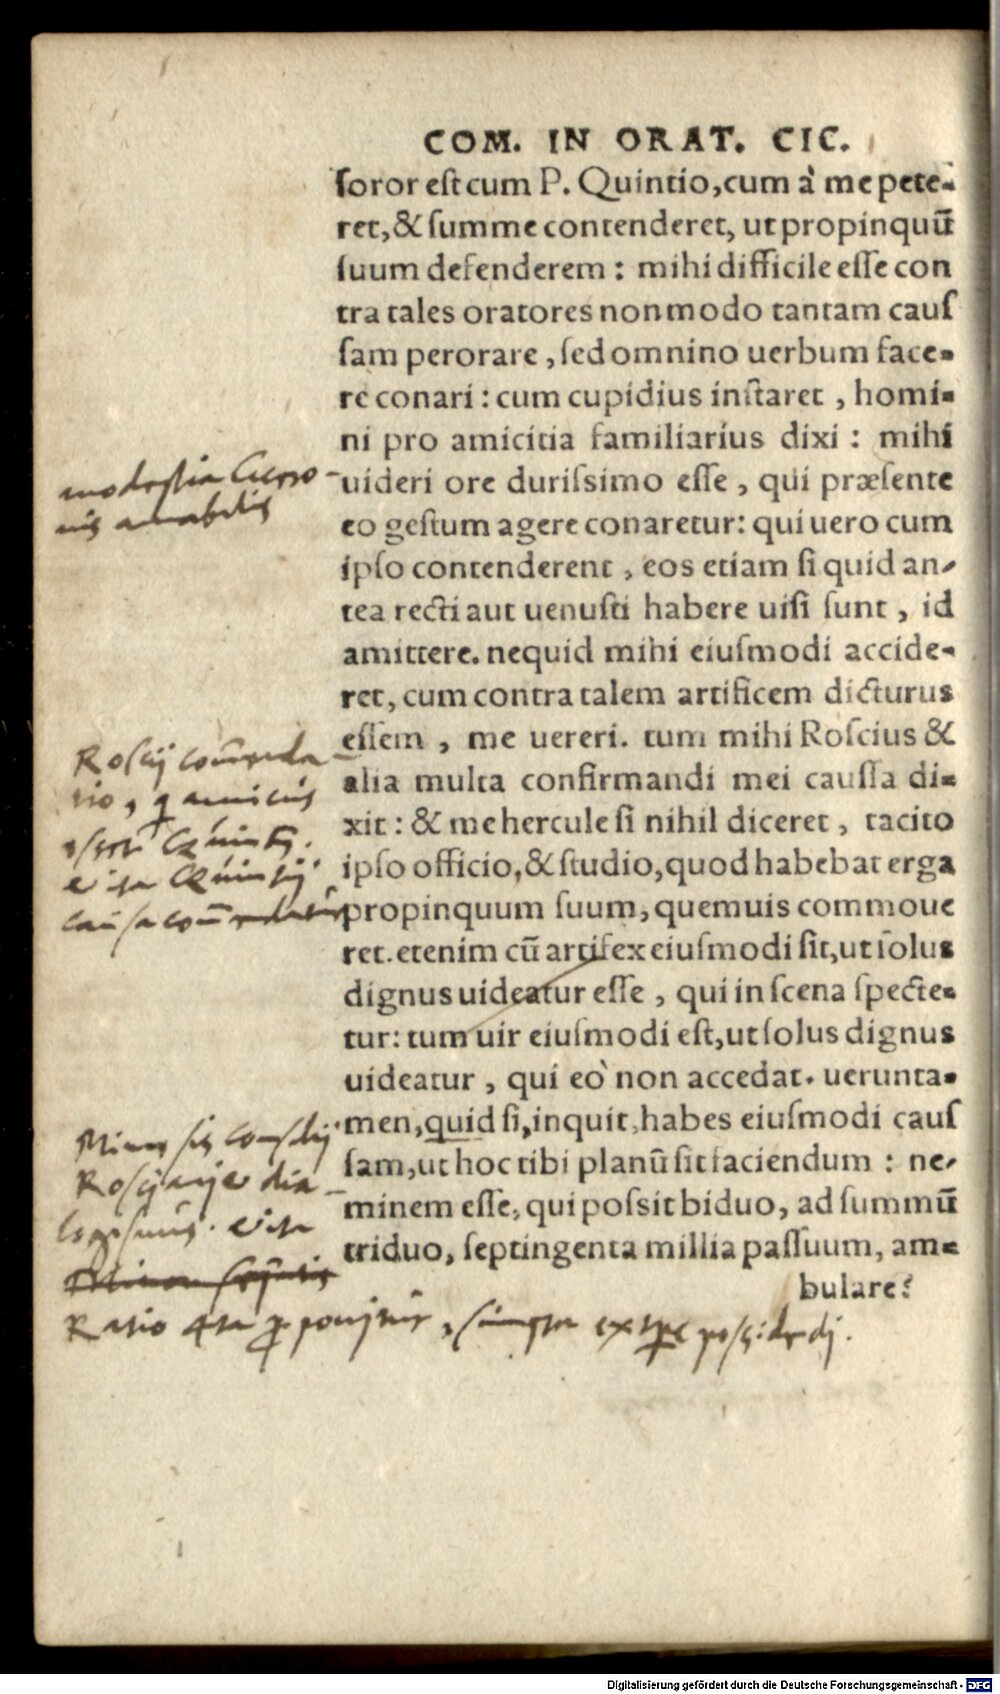 COM. IN ORAT. CIC.
soror est cum P. Quintio, cum à me pete-
ret, & summe contenderet, ut propinquũ
suum defenderem : mihi difficile esse con
tra tales oratores non modo tantam caus
sam perorare, sed omnino uerbum face-
re conari : cum cupidius instaret, homi-
ni pro amicitia familiarius dixi : mihi
uideri ore durissimo esse, qui præsente
eo gestum agere conaretur: qui uero cum
ipso contenderent, eos etiam si quid an-
tea recti aut uenusti habere uisi sunt, id
amittere. nequid mihi eiusmodi accide-
ret, cum contra talem artificem dicturus
essem, me uereri. tum mihi Roscius &
alia multa confirmandi mei caussa di-
xit : & mehercule si nihil diceret, tacito
ipso officio, & studio, quod habebat erga
propinquum suum, quemuis commoue
ret. etenim cũ artifex eiusmodi sit, ut solus
dignus uideatur esse, qui in scena specte-
tur: tum uir eiusmodi est, ut solus dignus
uideatur, qui eò non accedat. uerunta-
men, quid si, inquit, habes eiusmodi caus
sam, ut hoc tibi planũ sit faciendum : ne-
minem esse, qui possit biduo, ad summũ
triduo, septingenta millia passuum, am-
bulare?
modestia Cicero-
nis amabilis
Roscij com̃enda-
tio, amicus
Quintij
causa
consilij
Roscij
Ratio
Digitalisierung gefördert durch die Deutsche Forschungsgemeinschaft - DFG